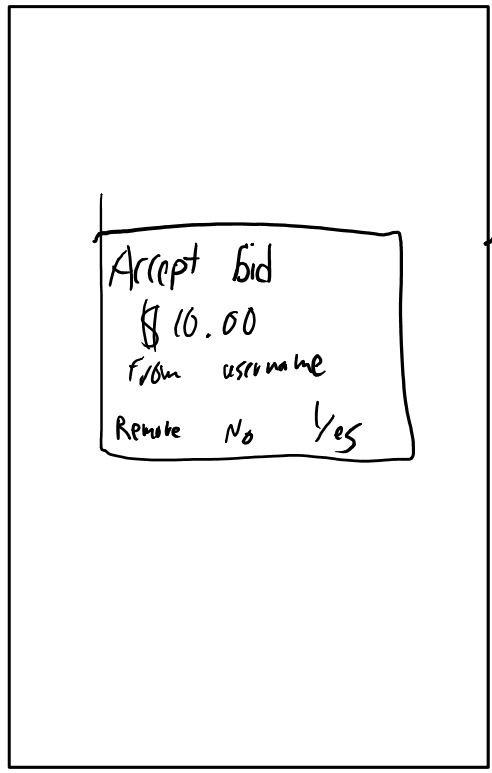 Accept bid
$10.00
From username
Remove No Yes